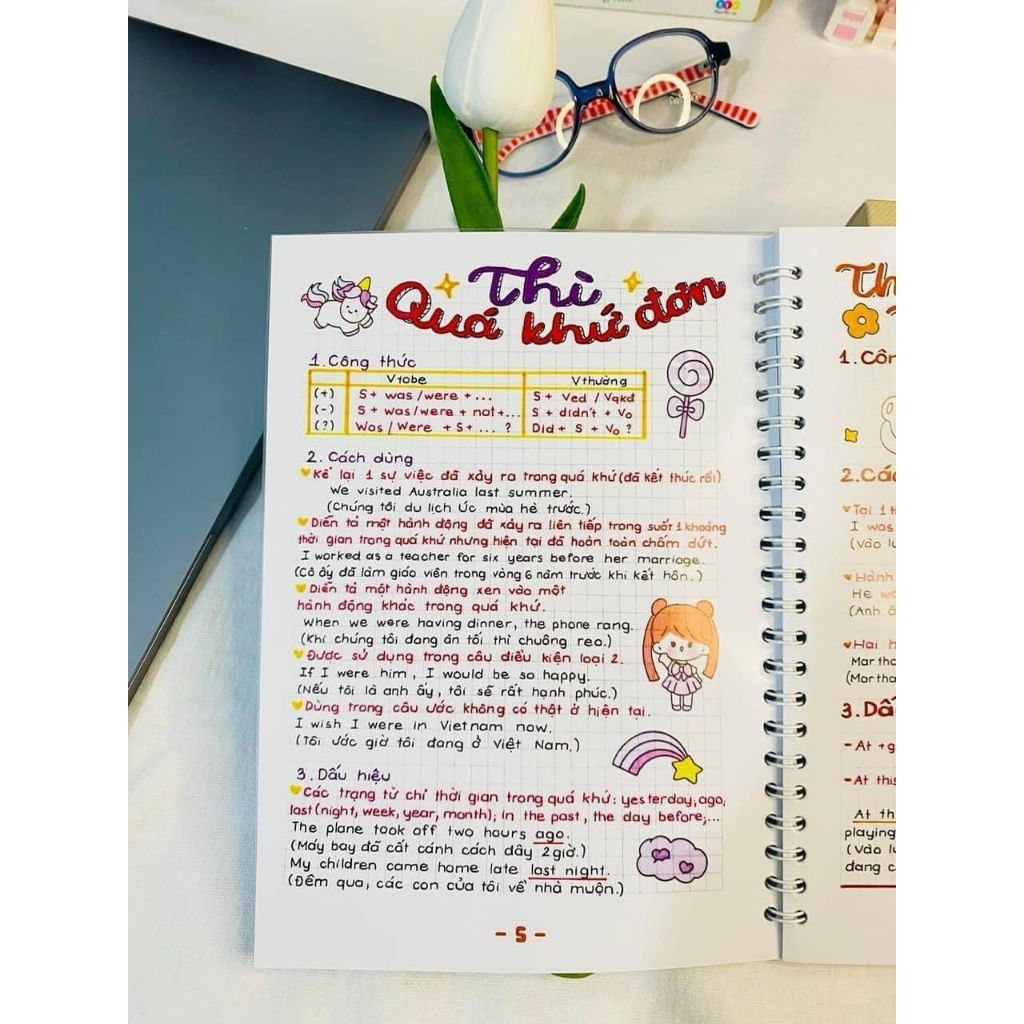 Thì
Quá khứ đơn
1. Công thức
Vtobe Vthường
(+) S + was / were + ... S + Ved / Vqkđ
(-) S + was / were + not + ... S + didn't + Vo
(?) Was / Were + S + ... ? Did + S + Vo ?
2. Cách dùng
Kể lại 1 sự việc đã xảy ra trong quá khứ (đã kết thúc rồi)
We visited Australia last summer.
(Chúng tôi du lịch Úc mùa hè trước.)
Diễn tả một hành động đã xảy ra liên tiếp trong suốt 1 khoảng
thời gian trong quá khứ nhưng hiện tại đã hoàn toàn chấm dứt.
I worked as a teacher for six years before her marriage.
(Cô ấy đã làm giáo viên trong vòng 6 năm trước khi kết hôn.)
Diễn tả một hành động xen vào một
hành động khác trong quá khứ.
When we were having dinner, the phone rang.
(Khi chúng tôi đang ăn tối thì chuông reo.)
Được sử dụng trong câu điều kiện loại 2.
If I were him, I would be so happy.
(Nếu tôi là anh ấy, tôi sẽ rất hạnh phúc.)
Dùng trong câu ước không có thật ở hiện tại.
I wish I were in Vietnam now.
(Tôi ước giờ tôi đang ở Việt Nam.)
3. Dấu hiệu
Các trạng từ chỉ thời gian trong quá khứ: yesterday, ago,
last (night, week, year, month); in the past, the day before,...
The plane took off two hours ago.
(Máy bay đã cất cánh cách đây 2 giờ.)
My children came home late last night.
(Đêm qua, các con của tôi về nhà muộn.)
- 5 -
Th
1. Côn
2. Các
Tại 1 t
I was
(Vào lú
Hành
He wa
(Anh ấ
Hai h
Martha
(Martha
3. Dấ
- At + g
- At this
At th
playing
(Vào lú
đang c